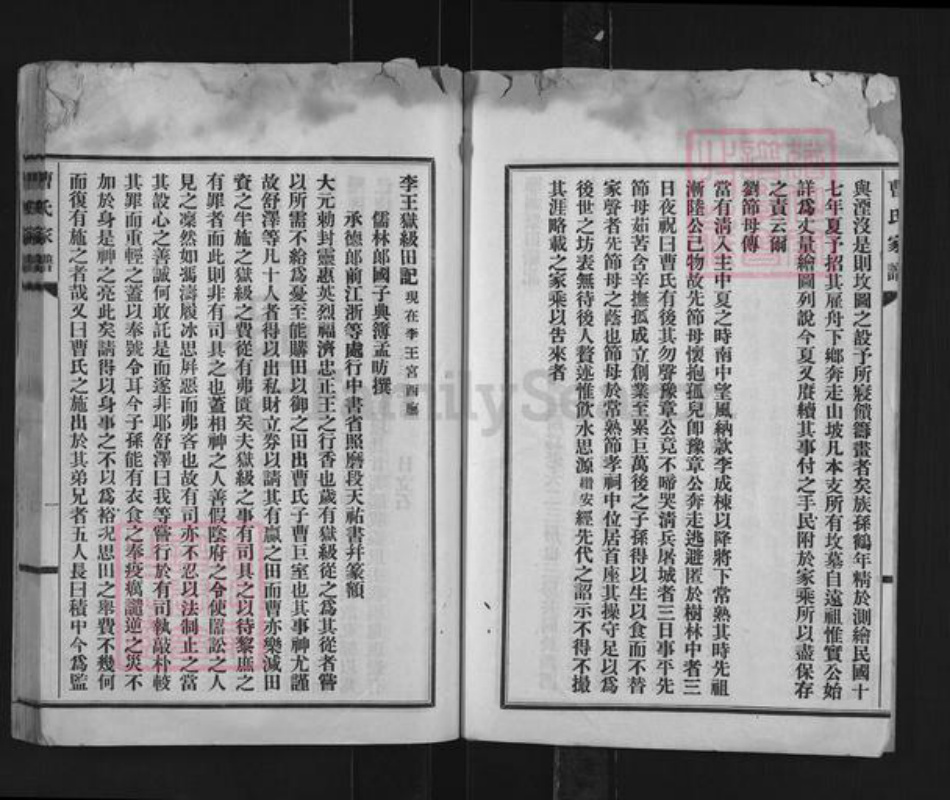 曹氏家譜
與湮沒是則坟圖之設予所寢饋籌畫者矣族孫鶴年精於測繪民國十
七年夏予招其雇舟下鄉奔走山坡凡本支所有坟墓自遠祖惟實公始
詳爲丈量繪圖列說今夏又賡續其事付之手民附於家乘所以盡保存
之責云爾
劉節母傳
當有淸入主中夏之時南中望風納款李成棟以降將下常熟其時先祖
漸陸公已物故先節母懷抱孤兒卽豫章公奔走逃避匿於樹林中者三
日夜祝曰曹氏有後其勿聲豫章公竟不啼哭淸兵屠城者三日事平先
節母茹苦含辛撫孤成立創業至累巨萬後之子孫得以生以食而不替
家聲者先節母之蔭也節母於常熟節孝祠中位居首座其操守足以爲
後世之坊表無待後人贅述惟飲水思源緝安經先代之詔示不得不撮
其涯略載之家乘以告來者
李王獄級田記 現在李王宮西廡
儒林郎國子典簿孟昉撰
承德郎前江浙等處行中書省照磨段天祐書幷篆額
大元勅封靈惠英烈福濟忠正王之行香也歲有獄級從之爲其從者嘗
以所需不給爲憂至能購田以御之田出曹氏子曹巨室也其事神尤謹
故舒澤等凡十人者得以出私財立券以請其有贏之田而曹亦樂減田
資之半施之獄級之費從有弗匱矣夫獄級之事有司具之以待黎庶之
有罪者而此則非有司具之也蓋相神之人善假陰府之令使嚚訟之人
見之凜然如馮濤履冰思屛惡而弗客也故有司亦不忍以法制止之當
其設心之善誠何敢託是而遂非耶舒澤曰我等嘗行於有司執敲朴較
其罪而重輕之蓋以奉號令耳今子孫能有衣食之奉疫癘譴逆之災不
加於身是神之亮此矣請得以身事之不以爲裕況思田之舉費不幾何
而復有施之者哉又曰曹氏之施出於其弟兄者五人長曰積中今爲監
曹氏家譜
一
FamilySearch